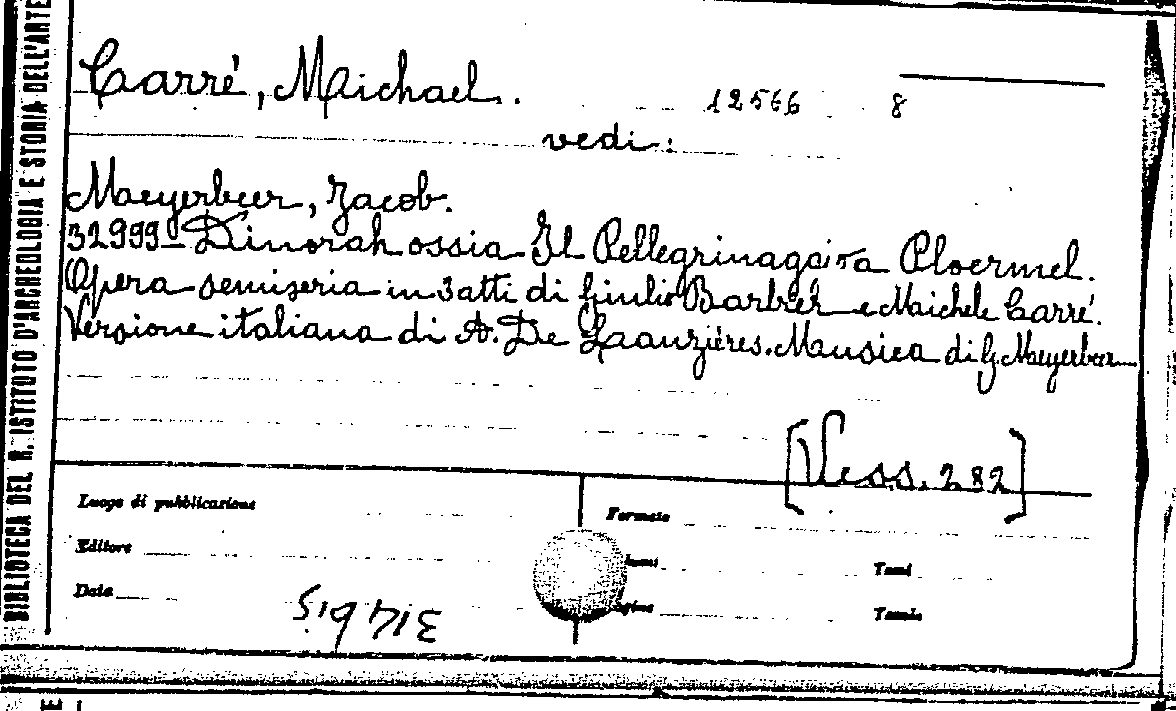 BIBLIOTECA DEL R. ISTITUTO D'ARCHEOLOGIA E STORIA DELL'ARTE
Carré, Michael.
12566 8
vedi:
Maeyerbeer, Jacob.
32999- Dinorah ossia Il Pellegrinaggio a Ploermel.
Opera semiseria in 3 atti di Giulio Barbier e Maichele Carré.
Versione italiana di A. De Laanzières. Mausica di G. Maeyerbeer
[Vess. 282]
Luogo di pubblicazione
Formato
Editore
Tomi
Data
Tavole
314 bis